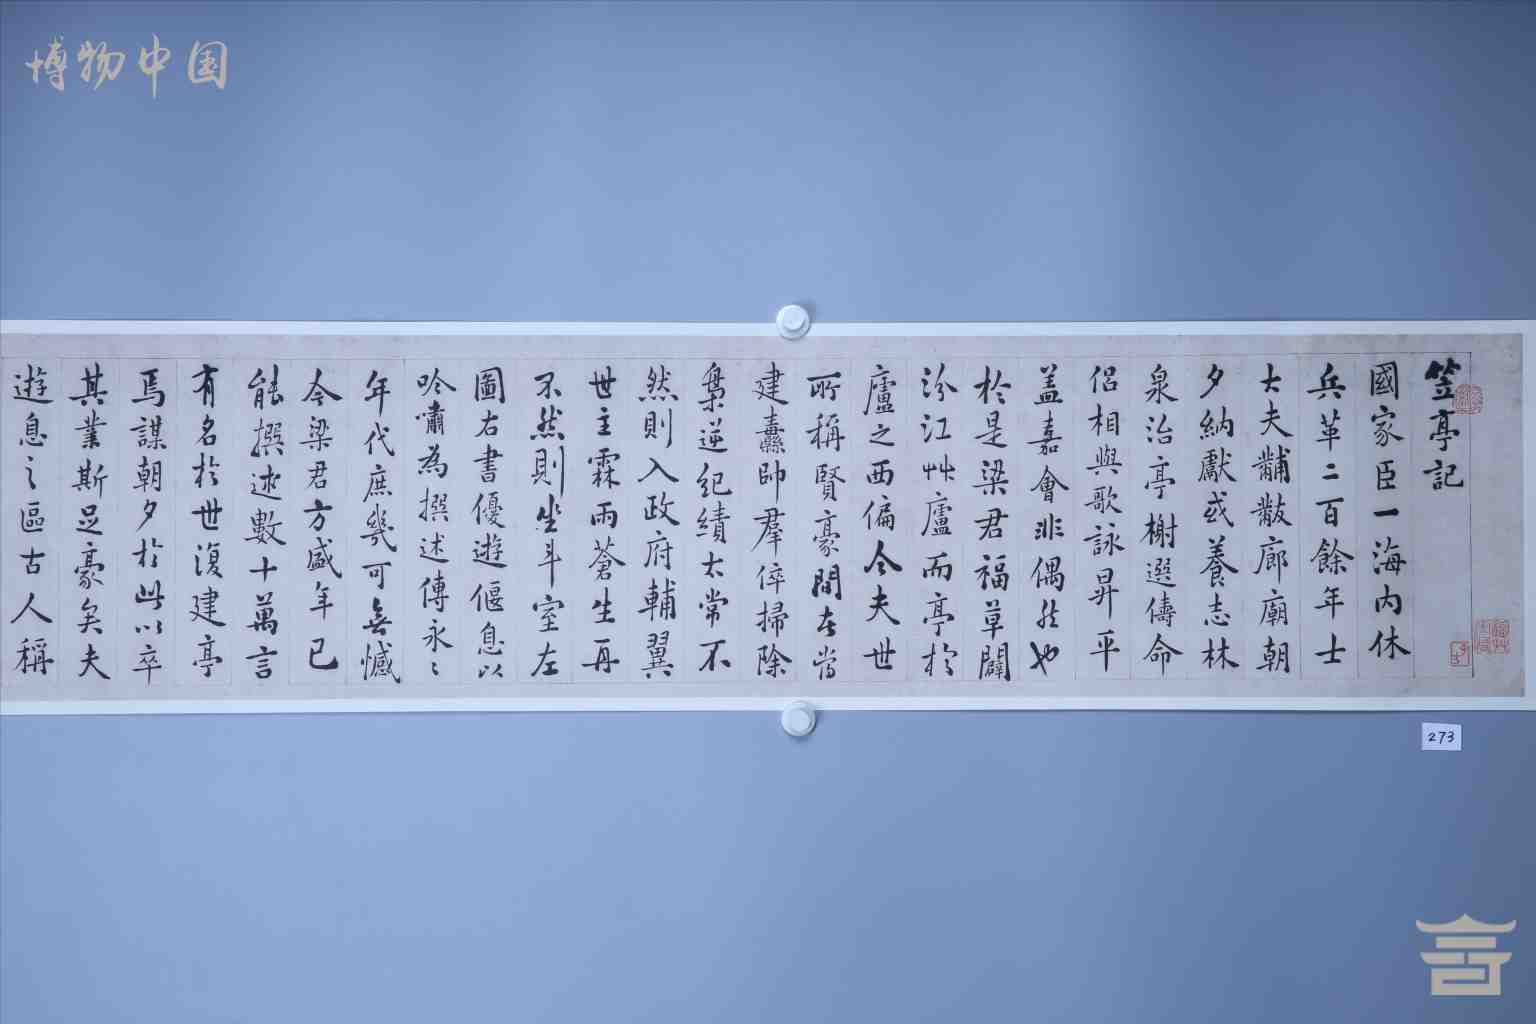 博物中国
笠亭記
國家臣一海内休
兵革二百餘年士
大夫黼黻廊廟朝
夕納獻或養志林
泉治亭榭選儔命
侶相與歌詠昇平
盖嘉會非偶然也
於是梁君福草闢
汾江艸廬而亭於
廬之西偏今夫世
所稱賢豪間者當
建纛帥羣倅掃除
梟逆紀績太常不
然則入政府輔翼
世主霖雨蒼生再
不然則坐斗室左
圖右書優遊偃息以
吟嘯為撰述傳永〻
年代庶幾可無憾
今梁君方盛年已
能撰述數十萬言
有名於世復建亭
焉謀朝夕於此以卒
其業斯足豪矣夫
遊息之區古人稱
273